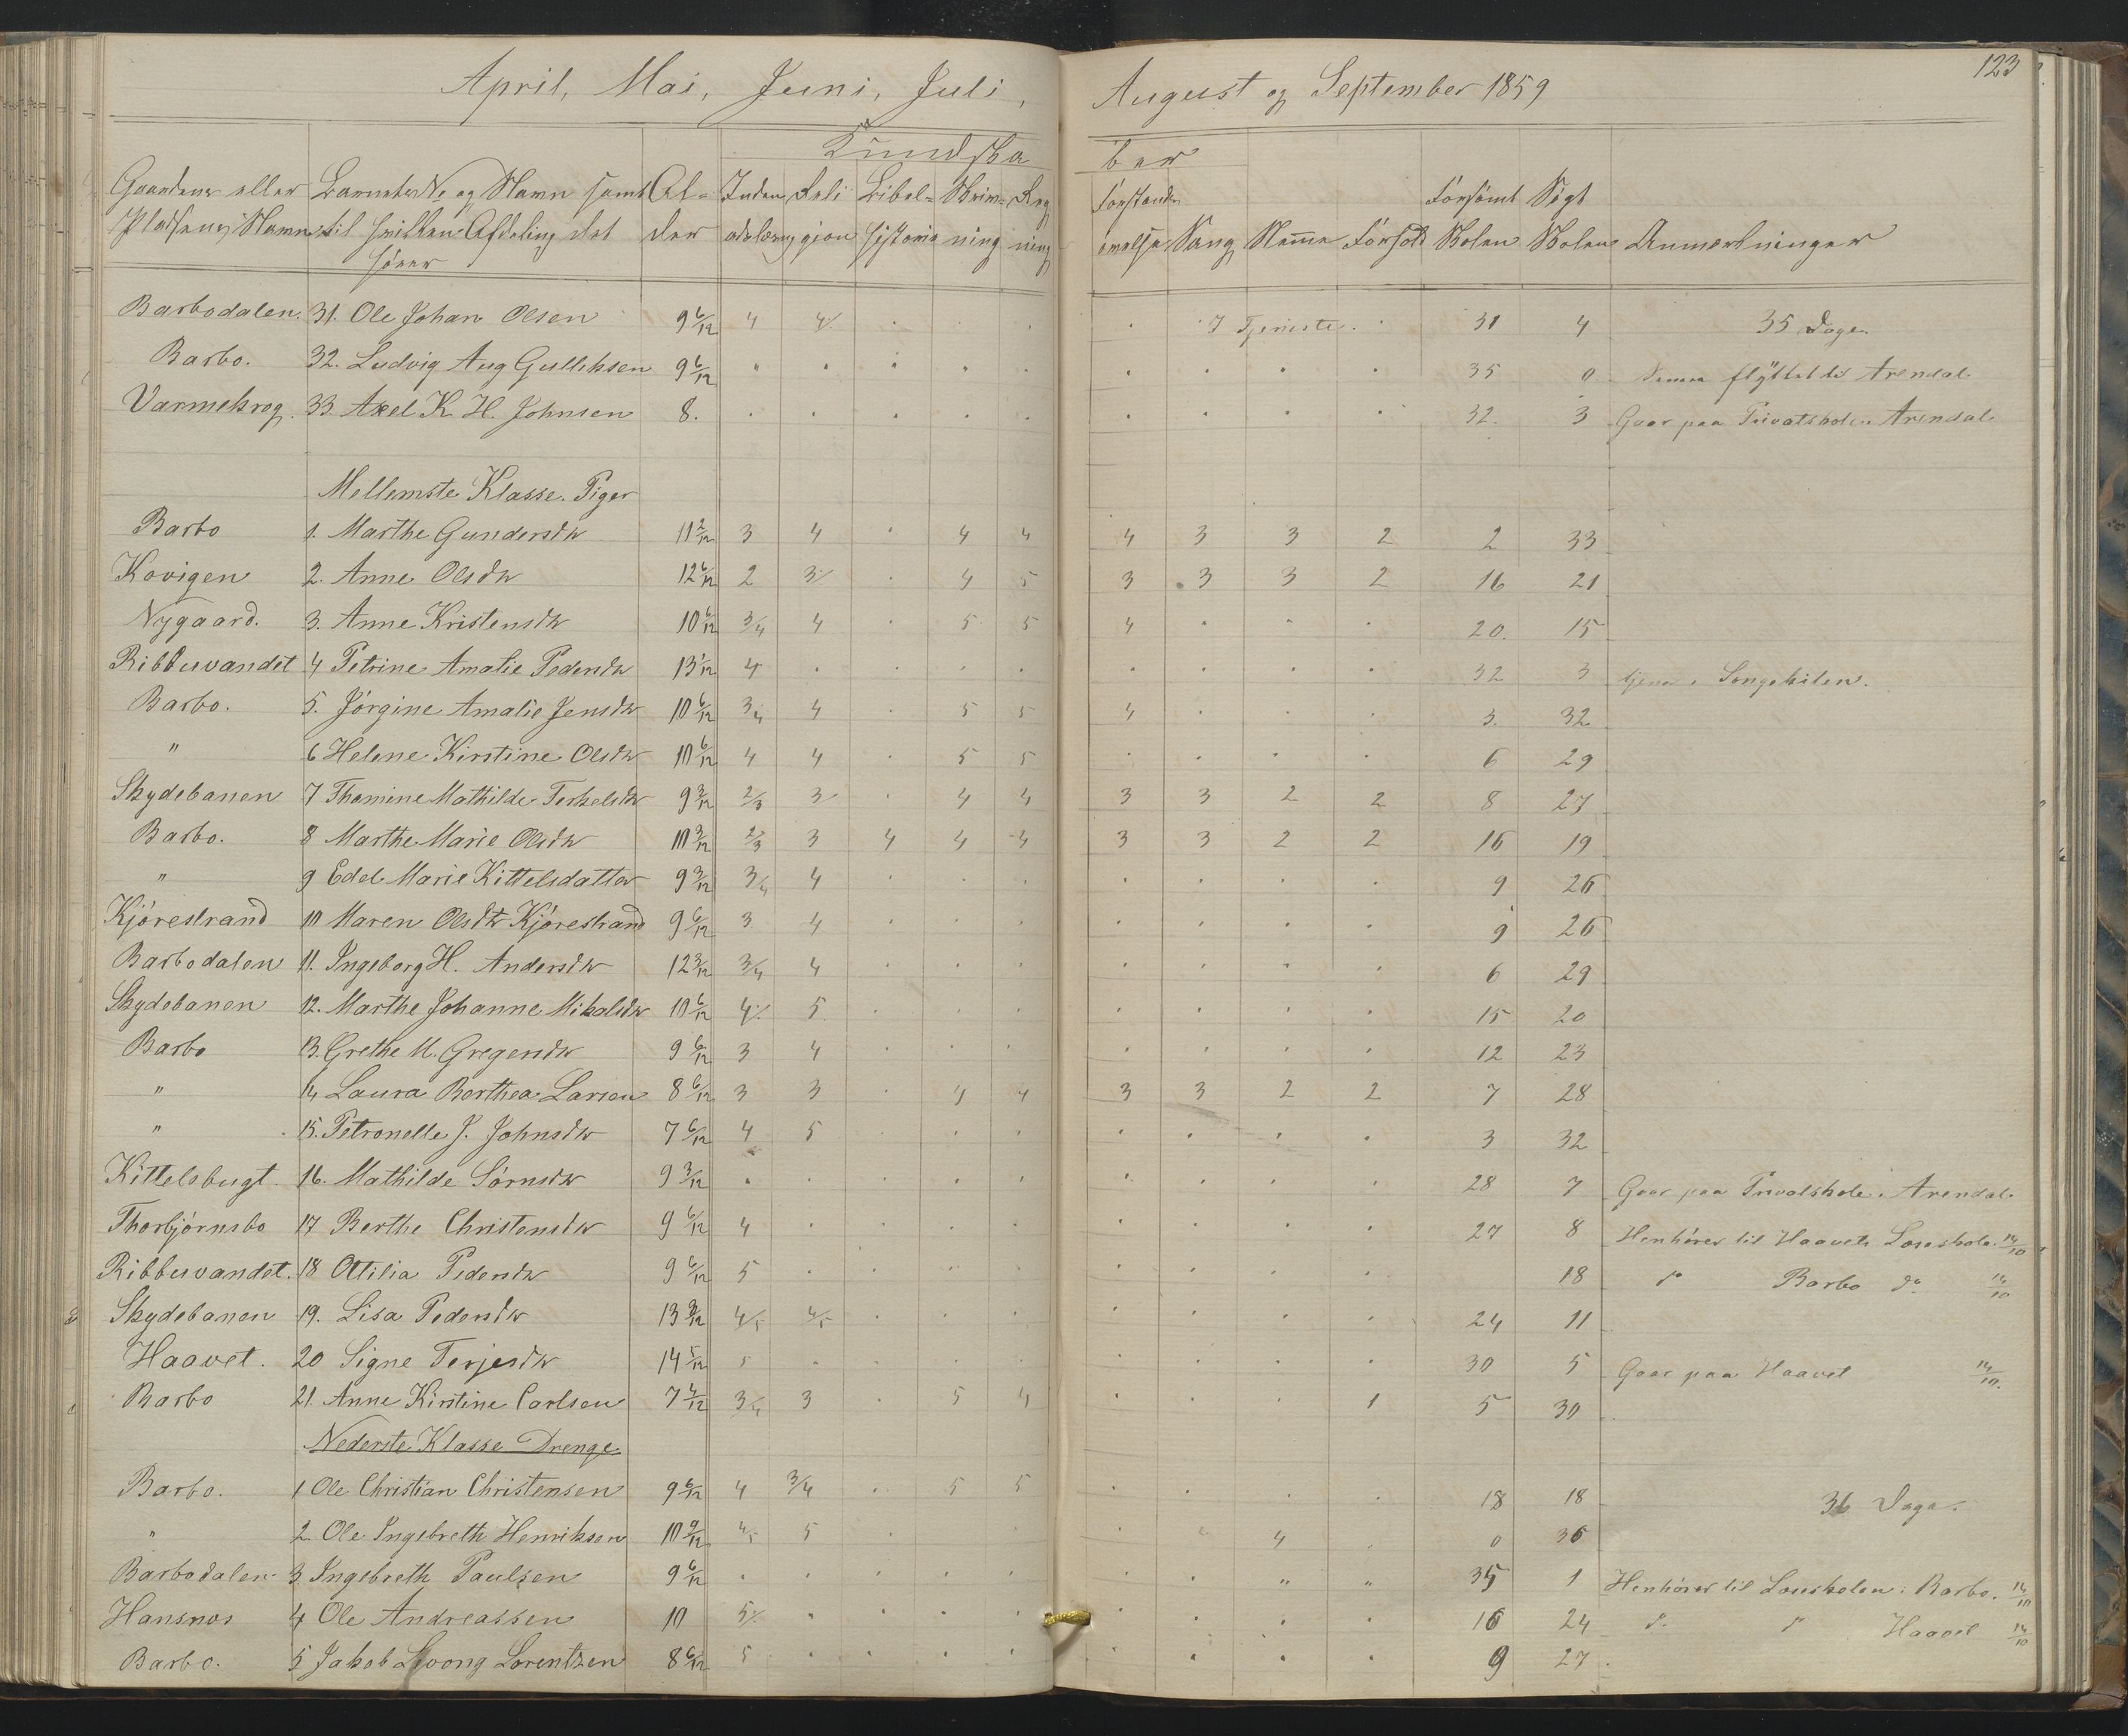 123
April, Mai, Juni, Juli, August og September 1859
Kundska ber
Gaardens eller Barnets No og Navn samt Al- Inden Reli Bibel- Skriv- Reg Forstands Forsömt Sögt
Pladsens Navn til hvilken Afdeling det der adslæsng gion historie ning ning övelse Sang Nemme Forhold Skolen Skolen Anmærkninger
hörer
Barbodalen. 31. Ole Johan Olsen 9 6/12 4 4 I Tjeneste. 31 4 35 Dage
Barbo. 32. Ludvig Aug Gulliksen 9 6/12 35 0 flyttet til Arendal
Varmekrog. 33. Axel K. H. Johnsen 8. 32. 3 Gaar paa Privatskole i Arendal.
Mellemste Klasse. Piger
Barbo 1. Marthe Gundersdtr 11 2/12 3 4 4 4 4 3 3 2 2 33
Kovigen 2. Anne Olsdtr 12 6/12 2 3 4 5 3 3 3 2 16 21
Nygaard. 3. Anne Kristensdtr 10 6/12 3/4 4 5 5 4 20. 15
Ribbervandet 4 Petrine Amalie Pedersdtr 13 1/12 4 32 3 tjener i Songekilen.
Barbo. 5. Jörgine Amalie Jensdtr 10 6/12 3/4 4 5 5 4 3. 32
" 6 Helene Kirstine Olsdtr 10 6/12 4 4 5 5 6 29
Skydebanen 7 Thomine Mathilde Terkelsdtr 9 3/12 2/3 3 4 4 3 3 2 2 8 27
Barbo. 8 Marthe Marie Olsdtr 10 3/12 2/3 3 4 4 4 3 3 2 2 16 19
" 9 Edel Marie Kittelsdatter 9 3/12 3/4 4 9 26
Kjörestrand 10 Maren Olsdtr Kjörestrand 9 6/12 3 4 9 26
Barbodalen 11. Ingeborg H. Andersdtr 12 3/12 3/4 4 6 29
Skydebanen 12. Marthe Johanne Mikalsdtr 10 6/12 4 5 15 20
Barbo 13. Grethe M. Gregersdtr 9 6/12 3 4 12 23
" 14 Laura Berthea Larsen 8 6/12 3 3 4 4 3 3 2 2 7 28
" 15. Petronelle J. Johnsdtr 7 6/12 4 5 3 32
Kittelsbugt. 16. Mathilde Sörnsdtr 9 3/12 28 7 Gaar paa Privatskole i Arendal.
Thorbjörnsbo 17 Berthe Christensdtr 9 6/12 4 27 8 Henhörer til Haavets Löseskole. 14/10
Ribbervandet. 18 Ottilia Pedersdtr 9 6/12 5 18 do Barbo do 14/10
Skydebanen 19. Lisa Pedersdtr 13 3/12 4/5 4/5 24 11
Haavet. 20 Signe Terjesdtr 14 5/12 5 30 5 Gaar paa Haavet 14/10.
Barbo 21. Anne Kirstine Carlsen 7 6/12 3/4 3 5 4 1 5 30
Nederste Klasse Drenge
Barbo. 1 Ole Christian Christensen 9 6/12 4 3/4 5 5 18 18 36 Dage.
" 2 Ole Ingebreth Henriksen 10 9/12 4/5 5 4 0 36
Barbodalen 3 Ingebreth Paulsen 9 6/12 " " 35 1 Henhörer til Löseskolen i Barbo. 14/10
Hansnes 4 Ole Andreassen 10 5 16 24 do do Haavet 14/10
Barbo. 5 Jakob Loong Lorentzen 8 6/12 5 9 27